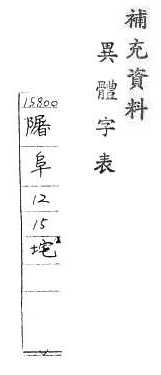 補充資料
異體字表
15800
隯
阜
12
15
垞